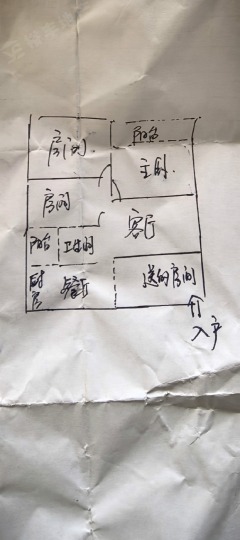 房间
阳台
主卧
房间
客厅
阳台
卫生间
厨房
餐厅
送的房间
入户